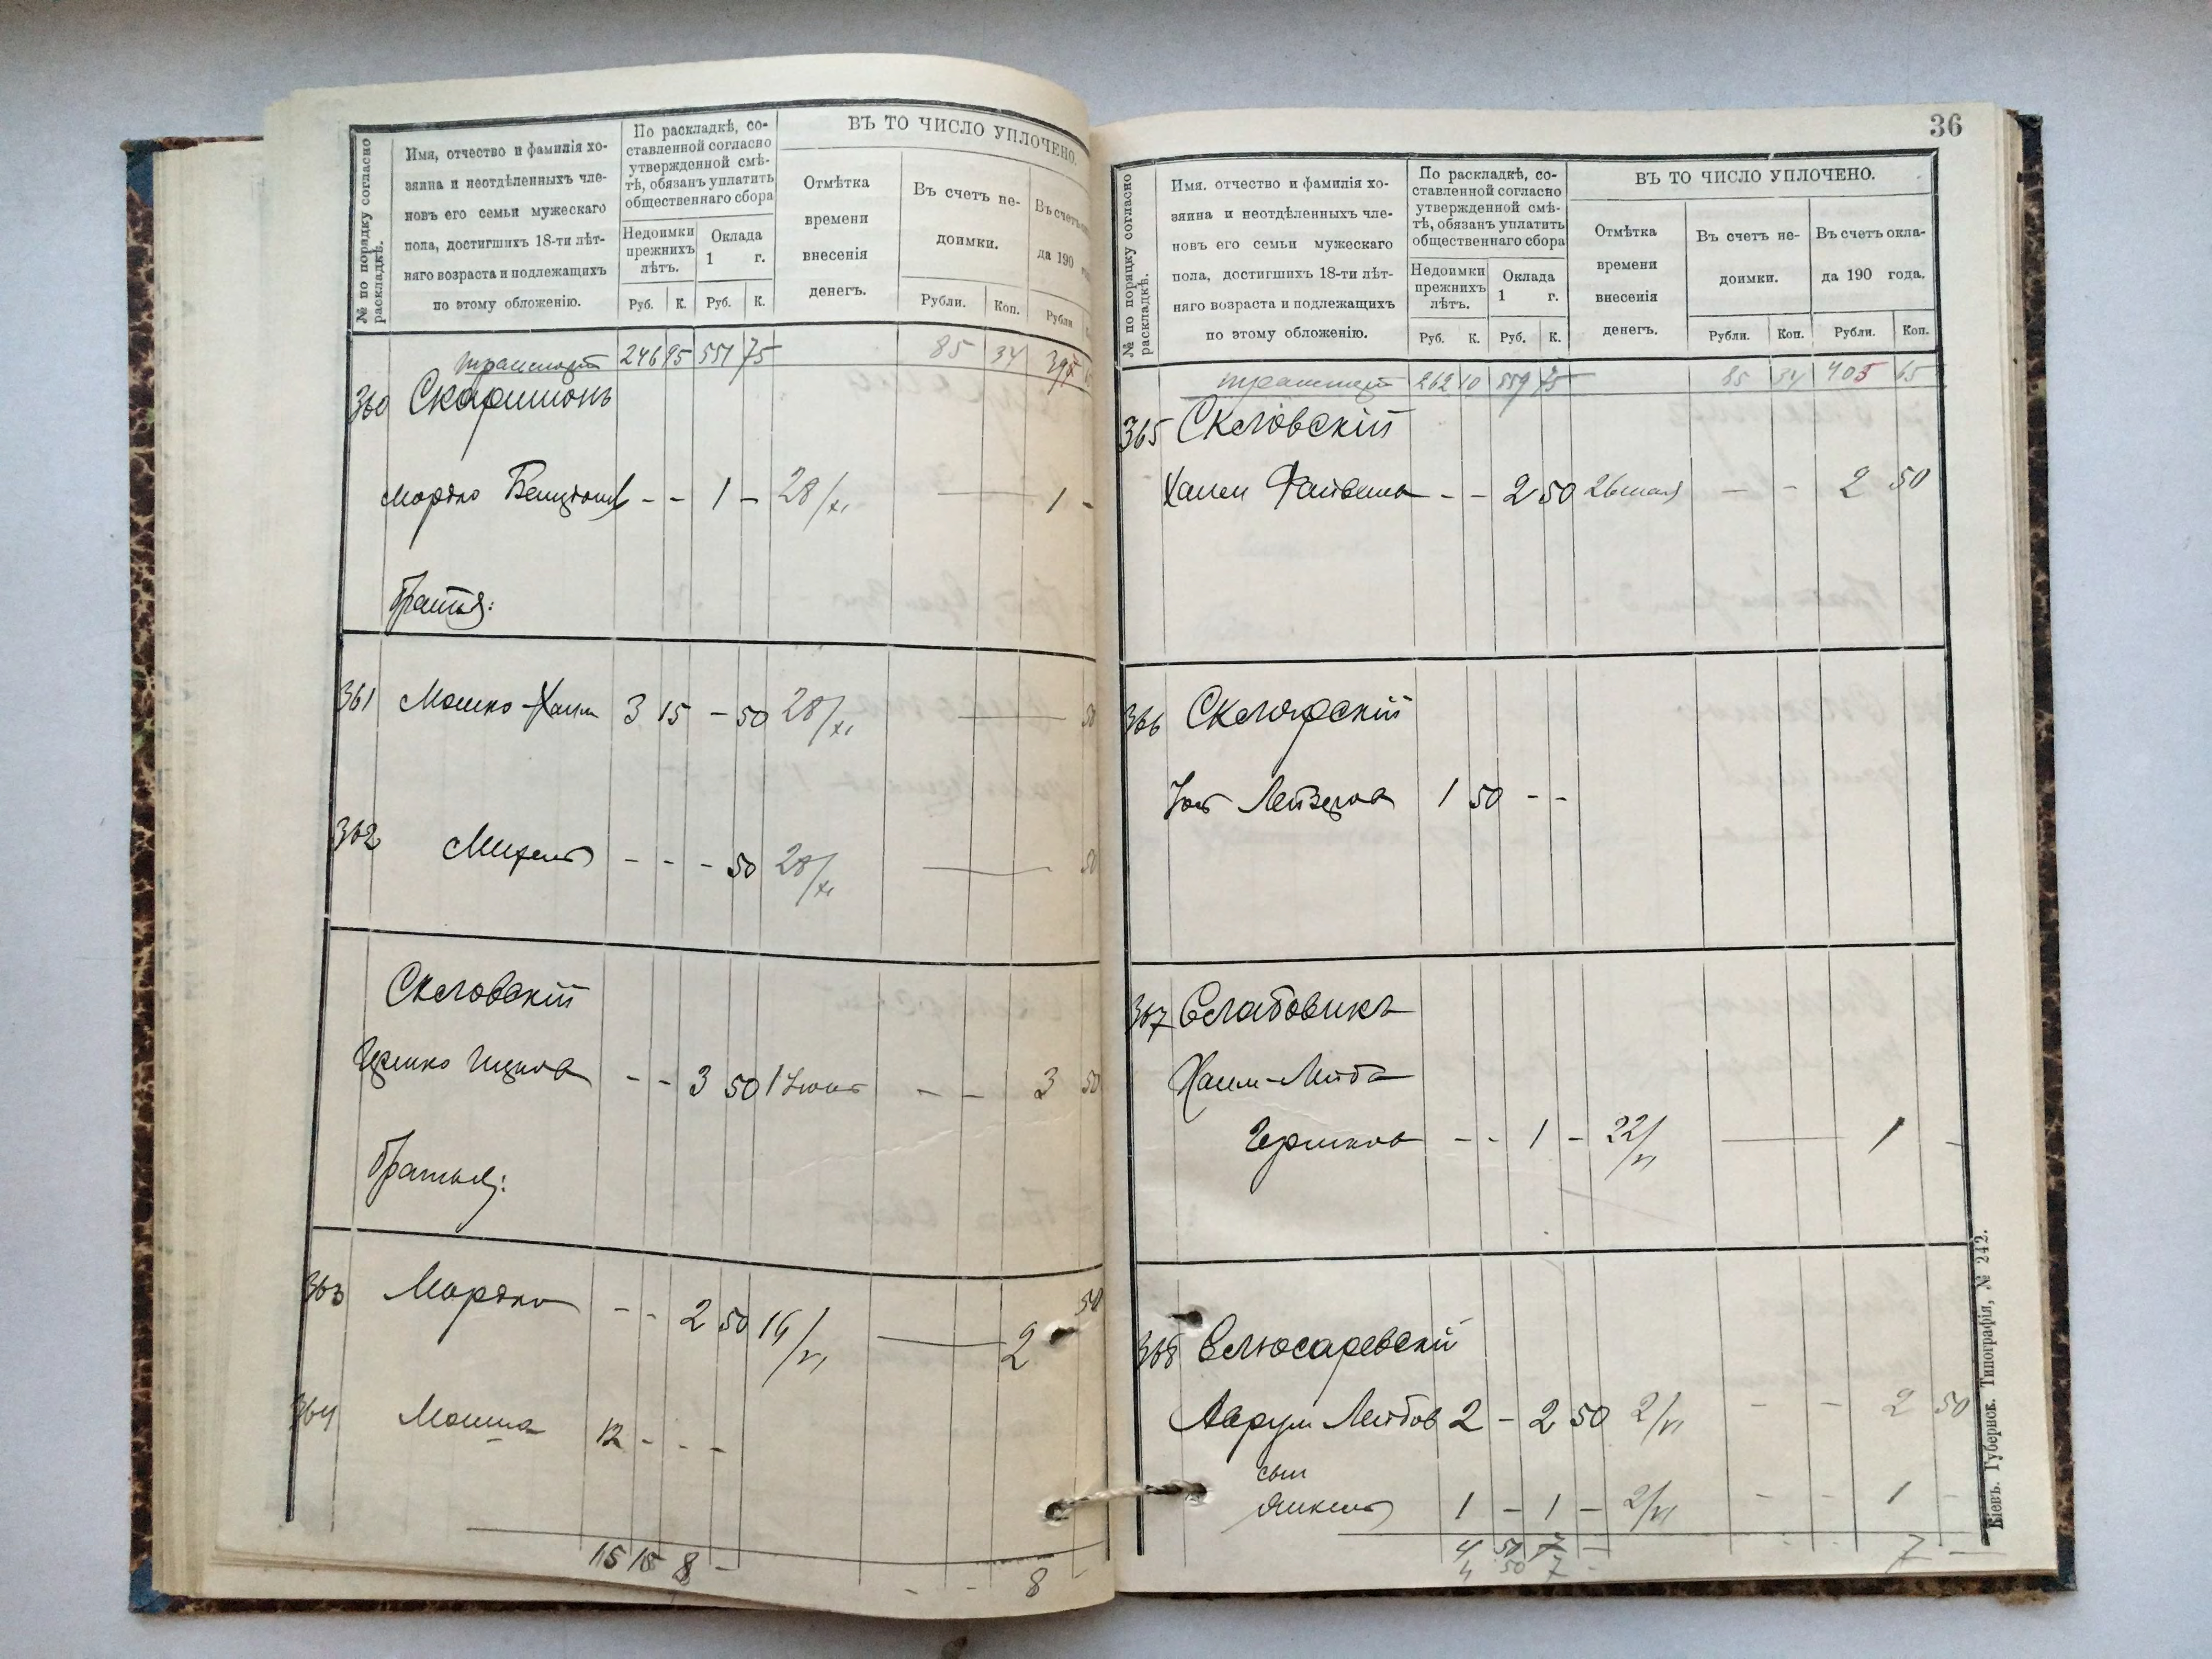 ВЪ ТО ЧИСЛО УПЛОЧЕНО.
№ по порядку согласно
раскладкѣ.
Имя, отчество и фамилія хо-
зяина и неотдѣленныхъ чле-
новъ его семьи мужескаго
пола, достигшихъ 18-ти лѣт-
няго возраста и подлежащихъ
по этому обложенію.
По раскладкѣ, со-
ставленной согласно
утвержденной смѣ-
тѣ, обязанъ уплатить
общественнаго сбора
Недоимки
прежнихъ
лѣтъ.
Оклада
1 г.
Руб. К. Руб. К.
Отмѣтка
времени
внесенія
денегъ.
Въ счетъ не-
доимки.
Рубли. Коп.
Въ счетъ
да 190
Рубли
транспортъ 246 95 551 75 85 34 395
360 Скоришонъ
Мордко - - 1 - 28/XI — 1 -
братья:
361 Мошко-Хаим 3 15 - 50 28/XI — 50
362 Михель - - - 50 28/XI — 50
Скловскій
Ицковъ - - 3 50 1 Іюня - - 3 50
братья:
363 Мордко - - 2 50 16/VI — 2 50
364 Мошка 12 - - -
15 15 8 - - - 8 -
36
ВЪ ТО ЧИСЛО УПЛОЧЕНО.
№ по порядку согласно
раскладкѣ.
Имя, отчество и фамилія хо-
зяина и неотдѣленныхъ чле-
новъ его семьи мужескаго
пола, достигшихъ 18-ти лѣт-
няго возраста и подлежащихъ
по этому обложенію.
По раскладкѣ, со-
ставленной согласно
утвержденной смѣ-
тѣ, обязанъ уплатить
общественнаго сбора
Недоимки
прежнихъ
лѣтъ.
Оклада
1 г.
Руб. К. Руб. К.
Отмѣтка
времени
внесенія
денегъ.
Въ счетъ не-
доимки.
Рубли. Коп.
Въ счетъ окла-
да 190 года.
Рубли. Коп.
транспортъ 262 10 559 75 85 34 403 65
365 Скловскій
Хаим Файвиша - - 2 50 26 мая - - 2 50
366 Склярскій
Лейзеров 1 50 - -
367 Слабовикъ
Хаим-Лейба
Гершков - - 1 - 22/VI — 1 -
368 Слюсаревскій
Аврум Лейбов 2 - 2 50 2/VI - - 2 50
сын
Янкель 1 - 1 - 2/VI - - 1 -
4 50 7 - 7 -
4 50 7 -
Кіевъ. Губернск. Типографія, № 242.